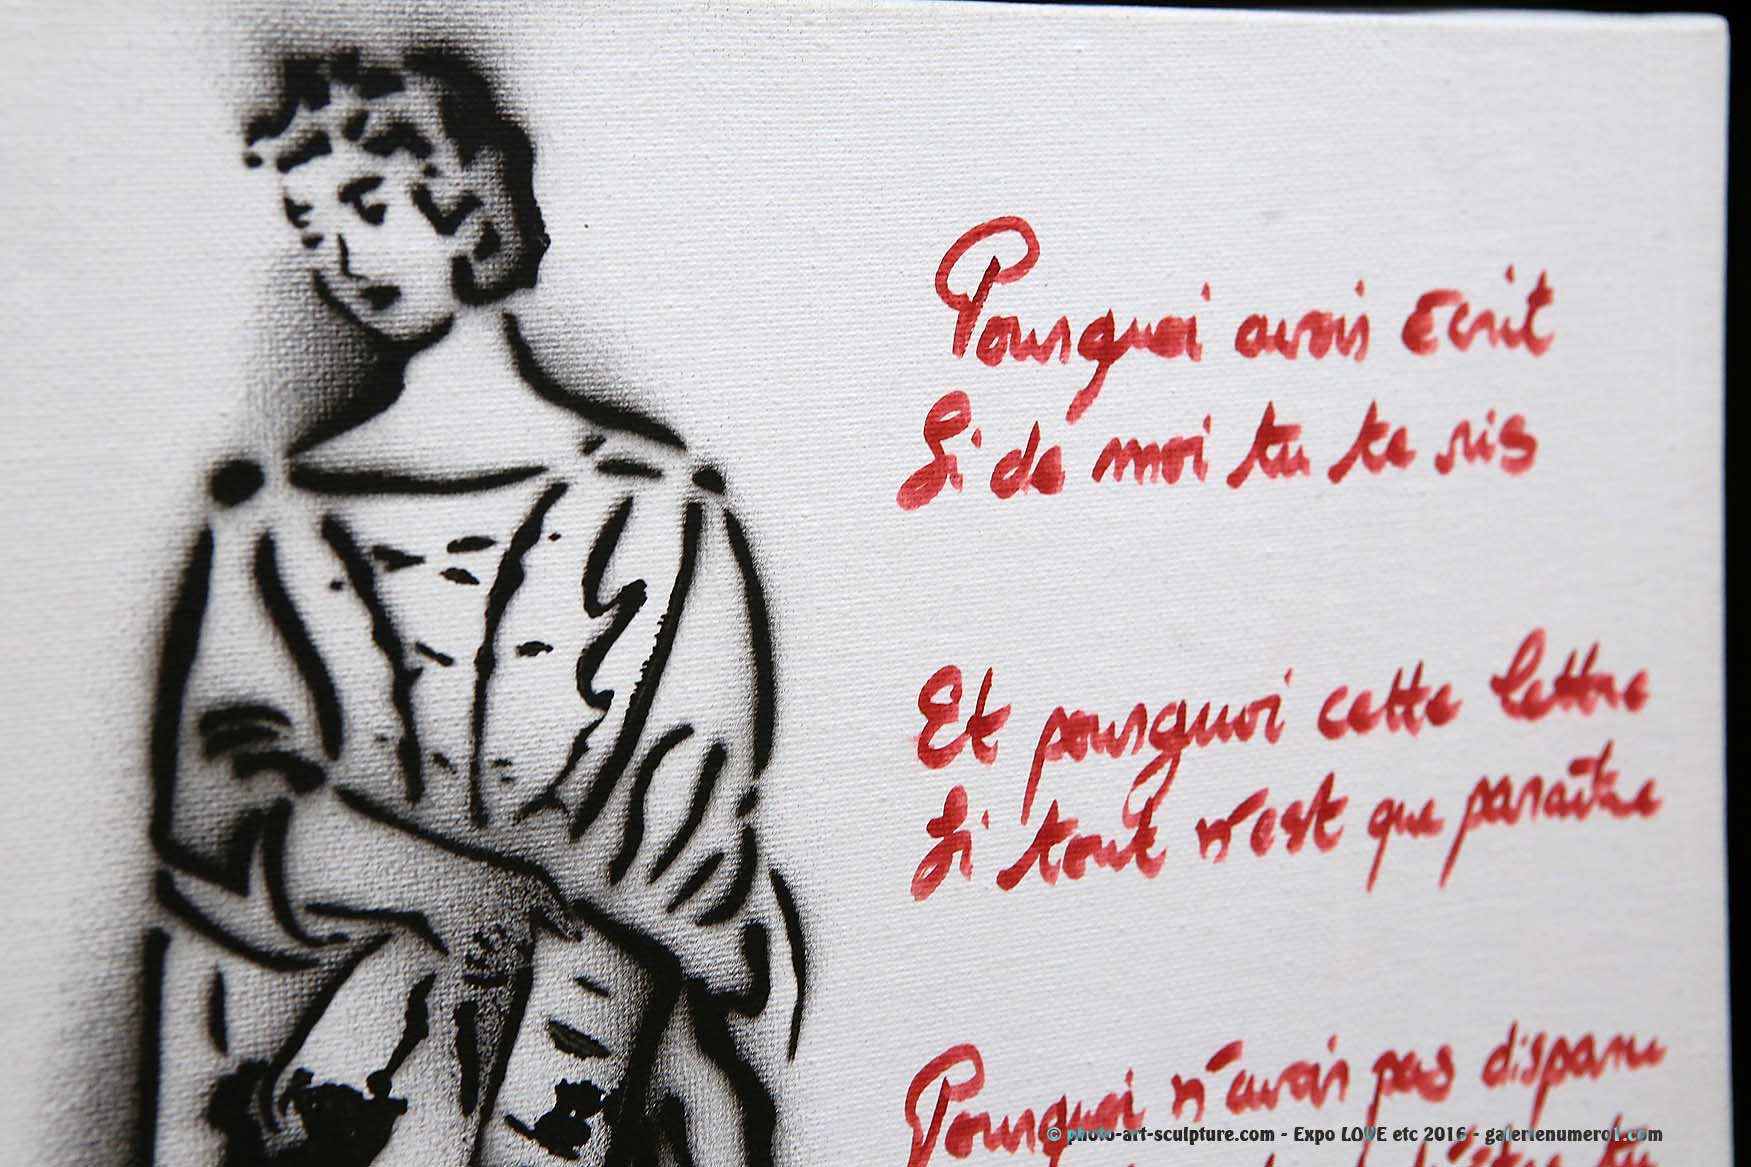 Pourquoi avoir écrit
Si de moi tu te ris
Et pourquoi cette lettre
Si tout n'est que paraître
Pourquoi n'avoir pas disparu
© photo-art-sculpture.com - Expo LOVE etc 2016 - galerienumero1.com